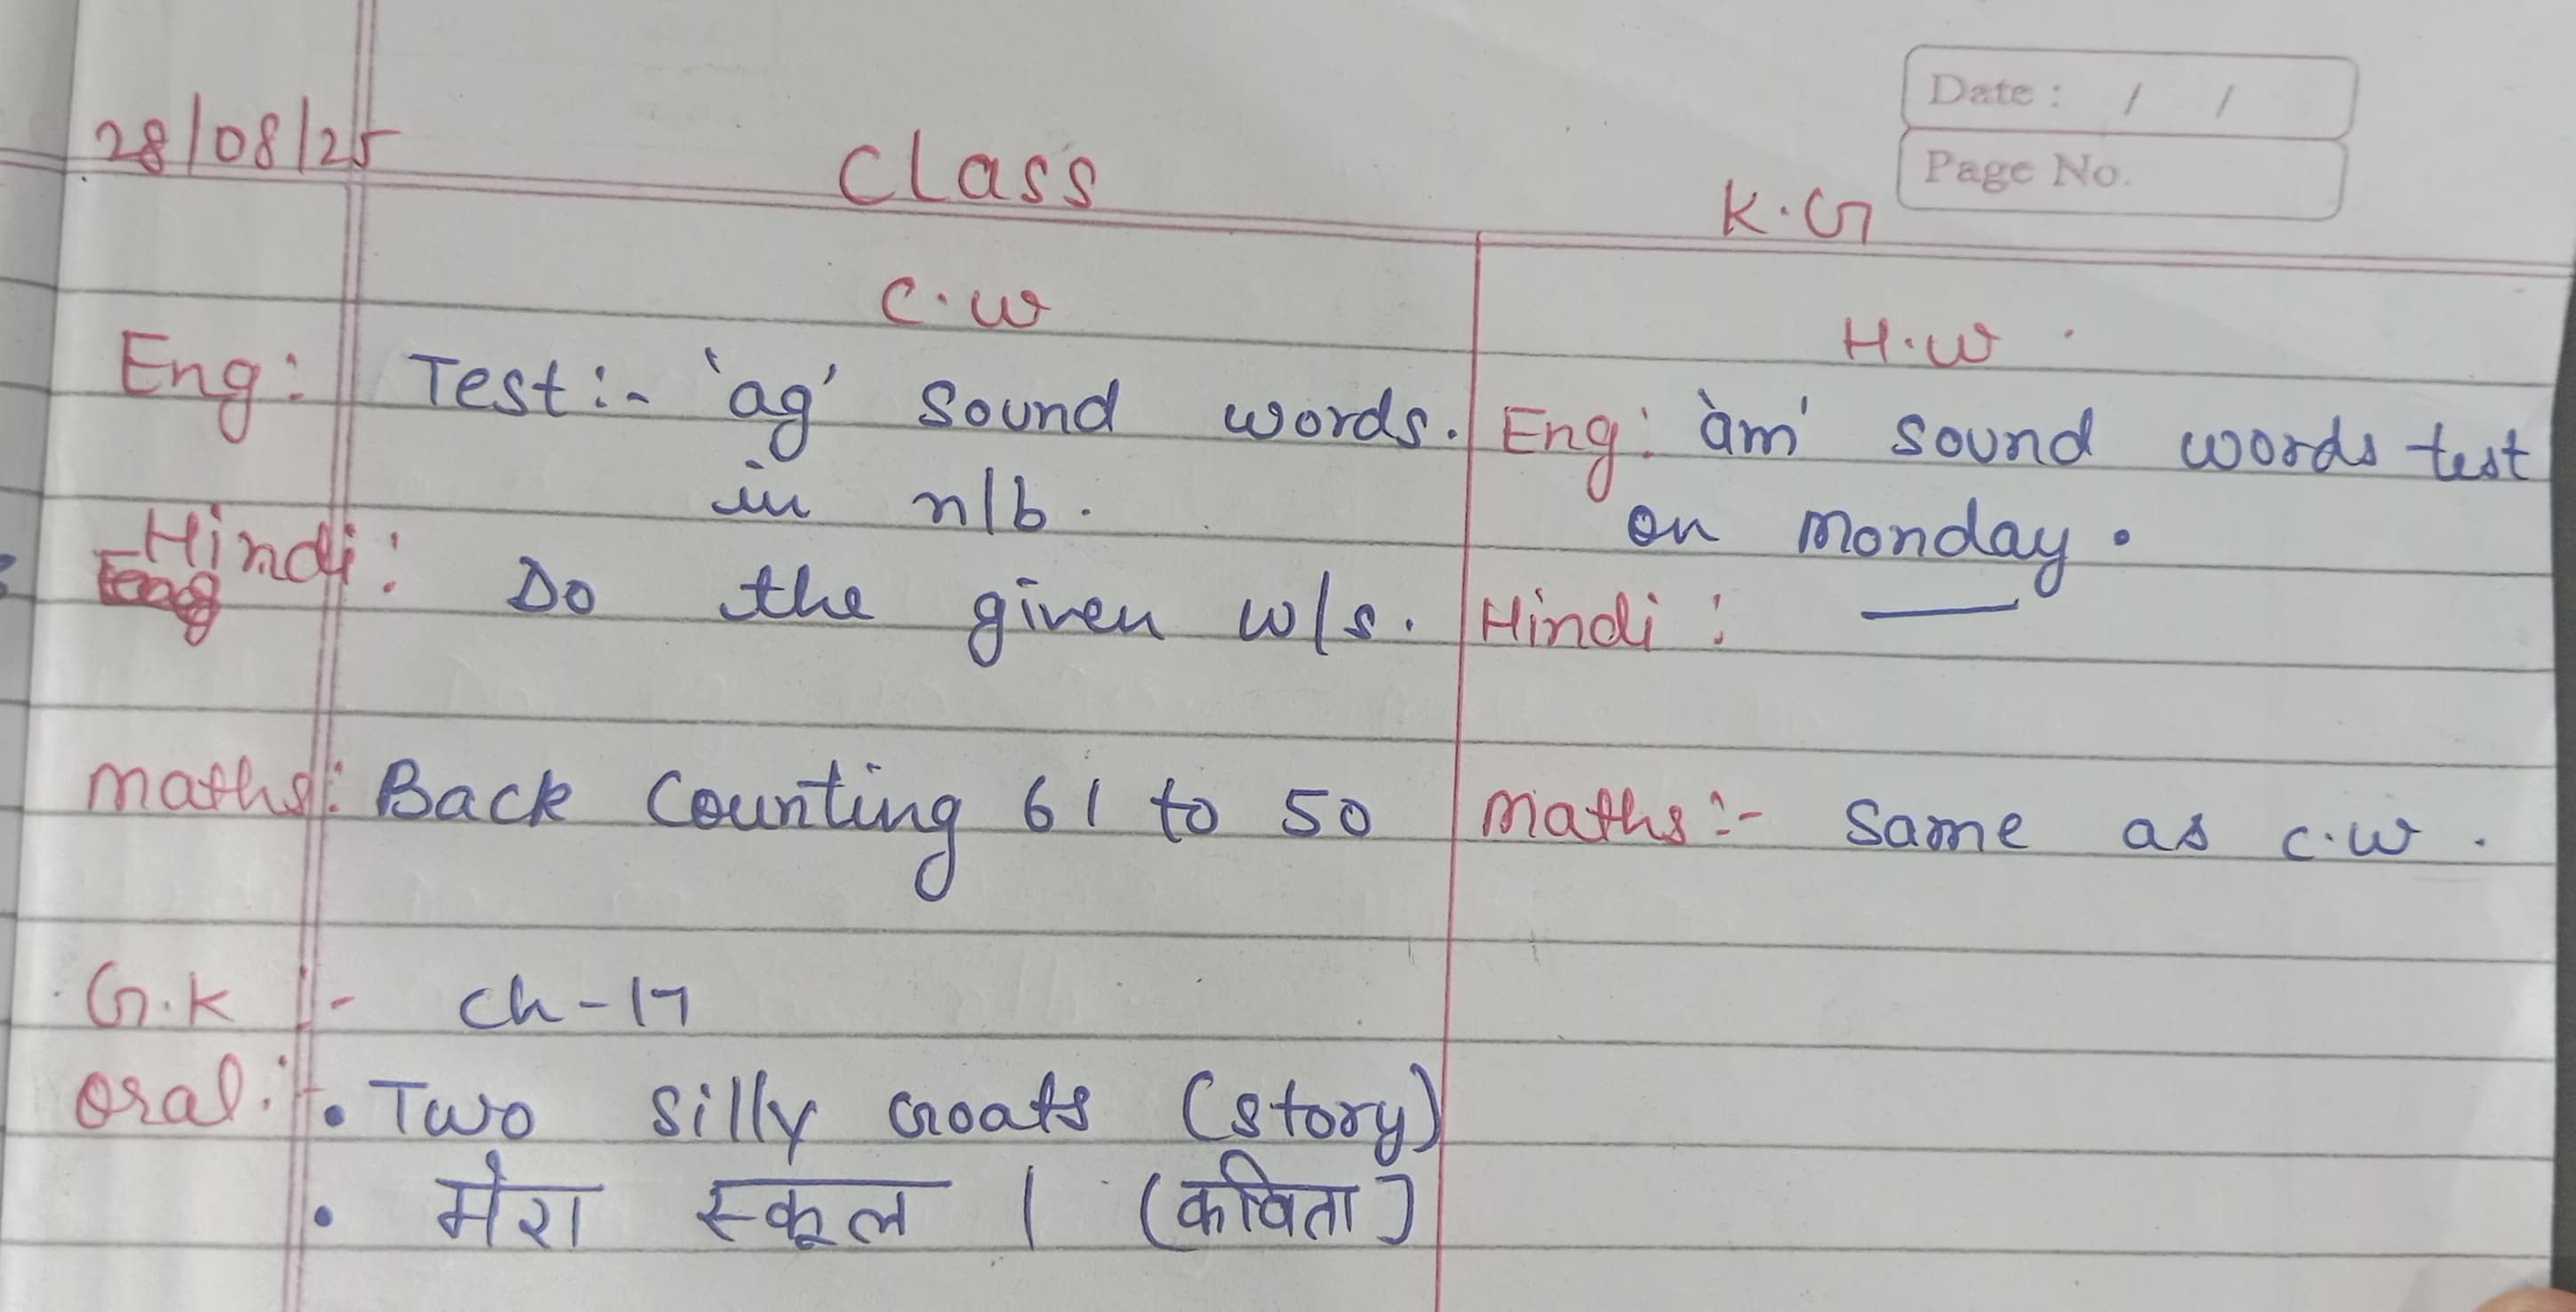 Date : / /
Page No.
28/08/25
Class
K.G
C.W
Eng: Test:- 'ag' sound words.
in n/b.
Hindi: Do the given w/s.
Maths: Back Counting 61 to 50
G.K :- Ch-17
Oral:- • Two silly Goats (story)
• मेरा स्कूल । (कविता)
H.W
Eng: 'am' sound words test
on Monday.
Hindi : —
Maths:- Same as c.w.